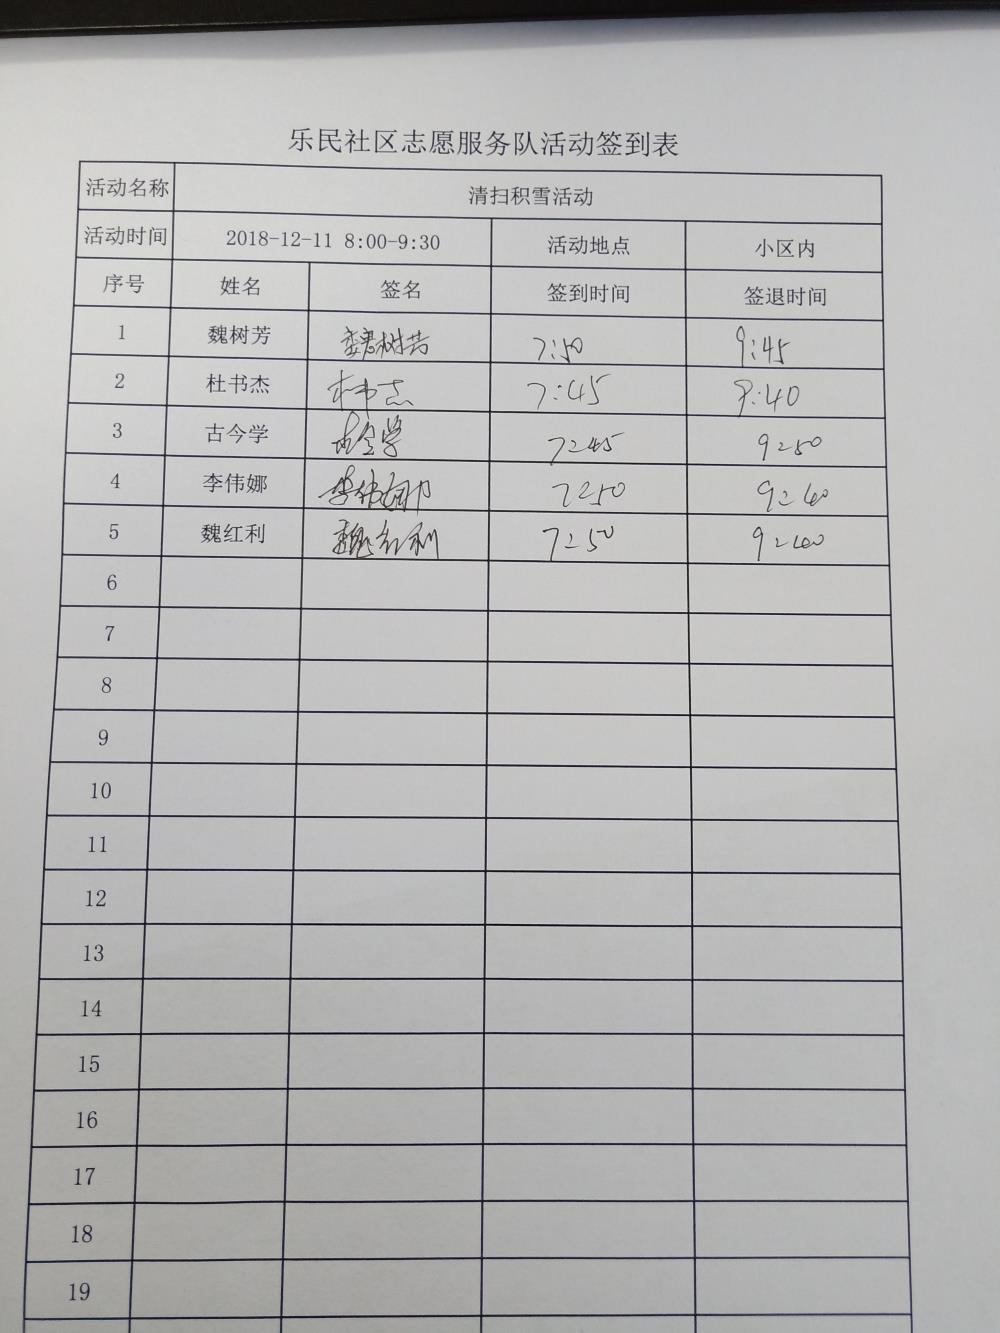 乐民社区志愿服务队活动签到表
活动名称 清扫积雪活动
活动时间 2018-12-11 8:00-9:30 活动地点 小区内
序号 姓名 签名 签到时间 签退时间
1 魏树芳 魏树芳 7:50 9:45
2 杜书杰 杜书杰 7:45 9:40
3 古今学 古今学 7:45 9:50
4 李伟娜 李伟娜 7:50 9:40
5 魏红利 魏红利 7:50 9:40
6
7
8
9
10
11
12
13
14
15
16
17
18
19